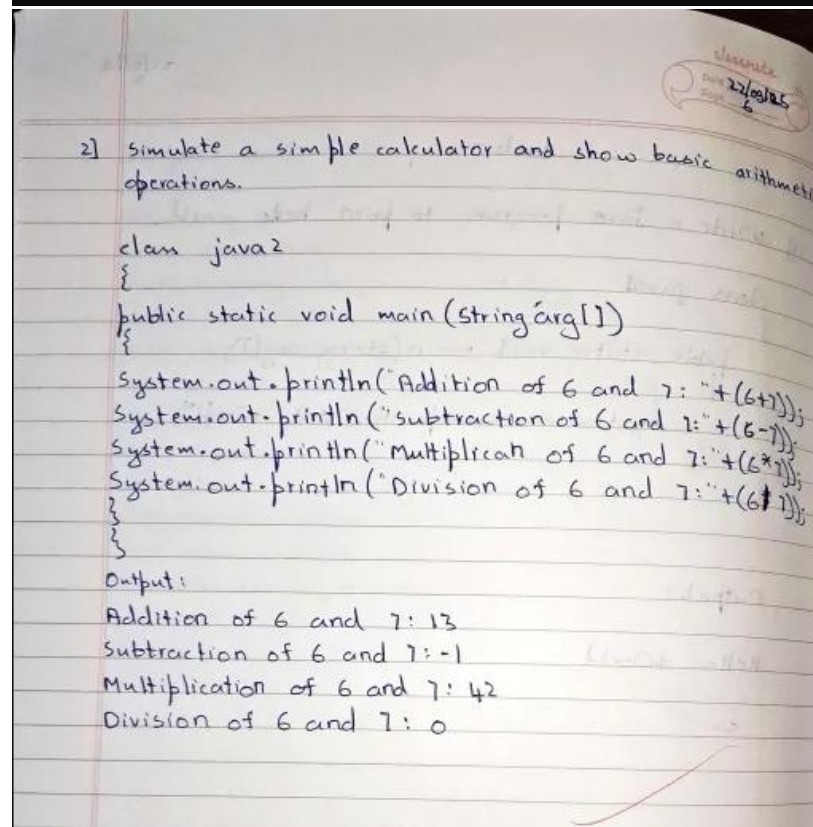 classmate
Date 22/09/25
Page 6
2] Simulate a simple calculator and show basic arithmeti
operations.
class java2
{
public static void main (String arg[])
{
System.out.println("Addition of 6 and 7: "+(6+7));
System.out.println("subtraction of 6 and 7:"+(6-7));
System.out.println("Multiplicah of 6 and 7:"+(6*7));
System.out.println("Division of 6 and 7:"+(6/7));
}
}
Output:
Addition of 6 and 7: 13
Subtraction of 6 and 7: -1
Multiplication of 6 and 7: 42
Division of 6 and 7: 0